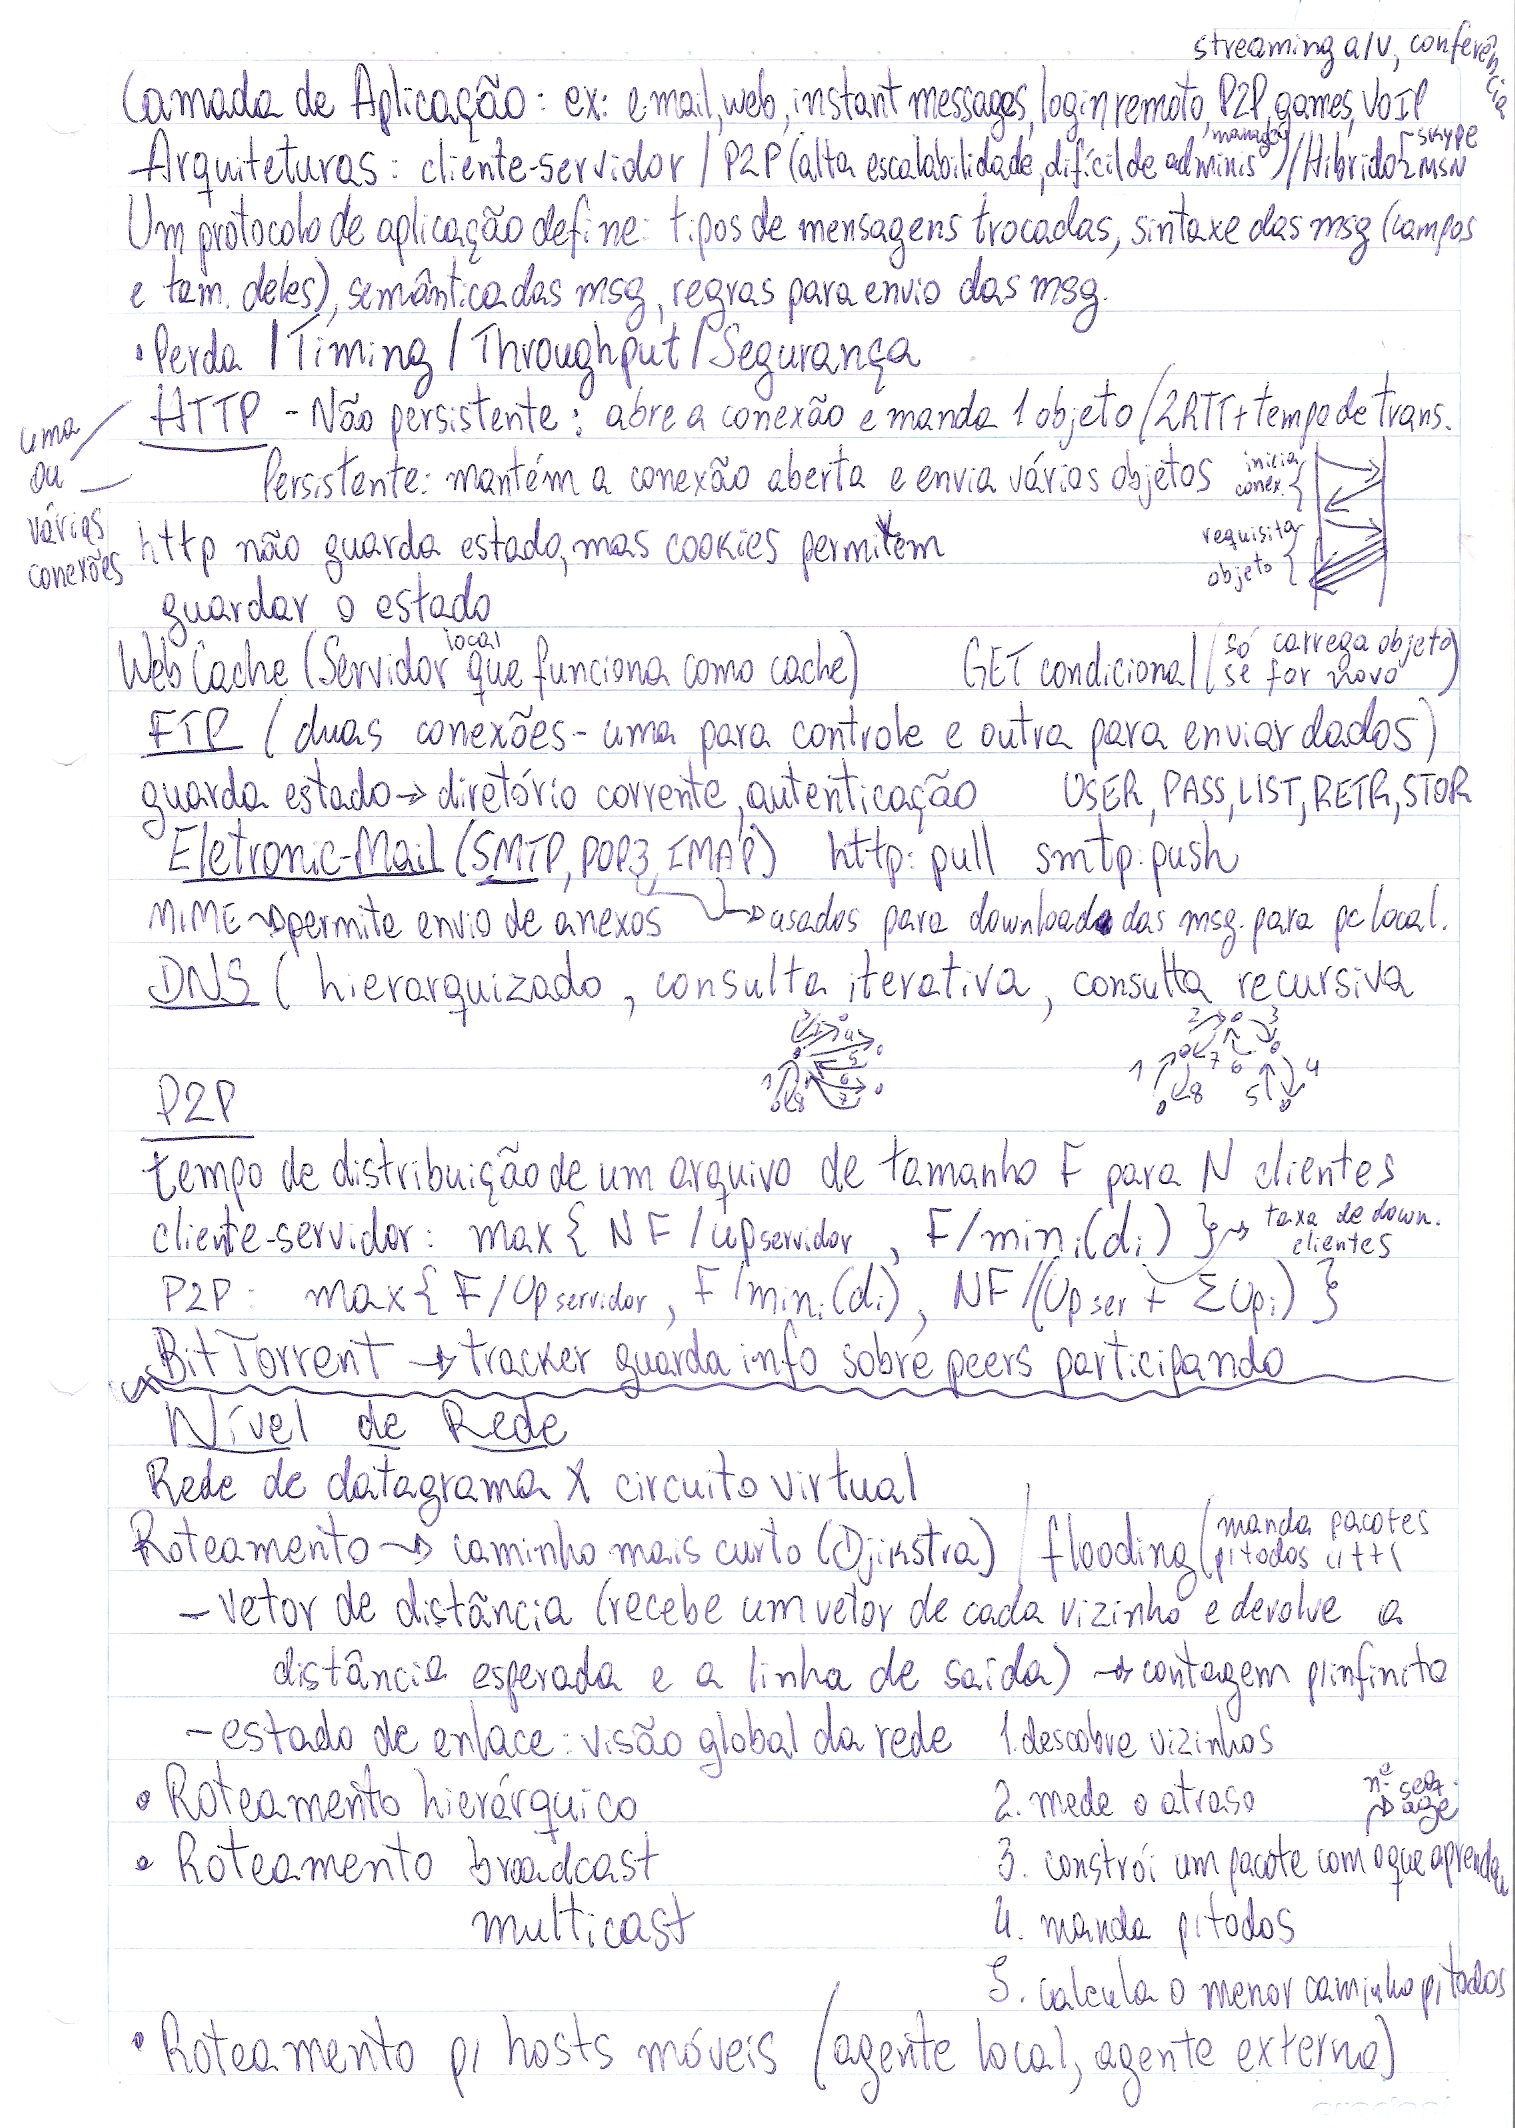 streaming a/v, conferência
Camada de Aplicação: ex: email, web, instant messages, login remoto, P2P, games, VoIP
Arquiteturas: cliente-servidor / P2P (alta escalabilidade, difícil de adminis manage) / Híbrido [ SKYPE MSN
Um protocolo de aplicação define: tipos de mensagens trocadas, sintaxe das msg (campos
e tam. deles), semântica das msg, regras para envio das msg.
• Perda / Timing / Throughput / Segurança
HTTP - Não persistente: abre a conexão e manda 1 objeto (2RTT + tempo de trans.
uma ou várias conexões
Persistente: mantém a conexão aberta e envia vários objetos
inicia conex. {
requisita objeto {
http não guarda estado, mas cookies permitem
guardar o estado
Web Cache (Servidor local que funciona como cache) GET condicional (só carrega objeto se for novo)
FTP (duas conexões - uma para controle e outra para enviar dados)
guarda estado → diretório corrente, autenticação USER, PASS, LIST, RETR, STOR
Eletronic-Mail (SMTP, POP3, IMAP) http: pull smtp: push
MIME → permite envio de anexos → usados para download das msg. para pc local.
DNS (hierarquizado, consulta iterativa, consulta recursiva
1 2 3 4 5 6 7 8
1 2 3 4 5 6 7 8
P2P
tempo de distribuição de um arquivo de tamanho F para N clientes
cliente-servidor: max { NF / up servidor , F/min i (di) } → taxa de down. clientes
P2P: max { F/Up servidor , F/min i (di), NF/(Up ser + Σ Up i) }
BitTorrent → tracker guarda info sobre peers participando
Nível de Rede
Rede de datagrama X circuito virtual
Roteamento → caminho mais curto (Djikstra) / flooding (manda pacotes p/ todos
- vetor de distância (recebe um vetor de cada vizinho e devolve a
distância esperada e a linha de saída) → contagem p/ infinito
- estado de enlace: visão global da rede 1. descobre vizinhos
• Roteamento hierárquico 2. mede o atraso nº seq. → age
• Roteamento broadcast 3. constrói um pacote com o que aprendeu
multicast 4. manda p/ todos
5. calcula o menor caminho p/ todos
• Roteamento p/ hosts móveis (agente local, agente externo)